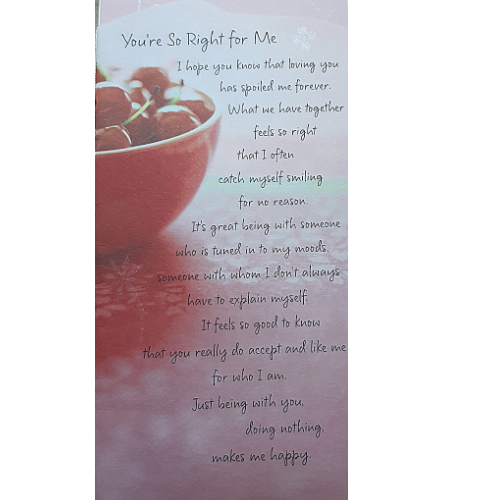 You're So Right for Me
I hope you know that loving you
has spoiled me forever.
What we have together
feels so right
that I often
catch myself smiling
for no reason.
It's great being with someone
who is tuned in to my moods,
someone with whom I don't always
have to explain myself.
It feels so good to know
that you really do accept and like me
for who I am.
Just being with you,
doing nothing,
makes me happy.